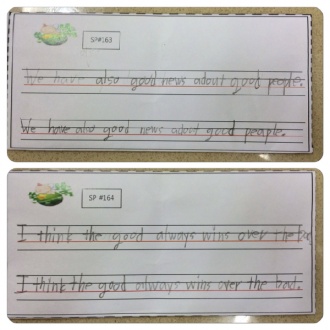 SP#163
We have also good news about good people.
We have also good news about good people.
SP #164
I think the good always wins over the bad
I think the good always wins over the bad.